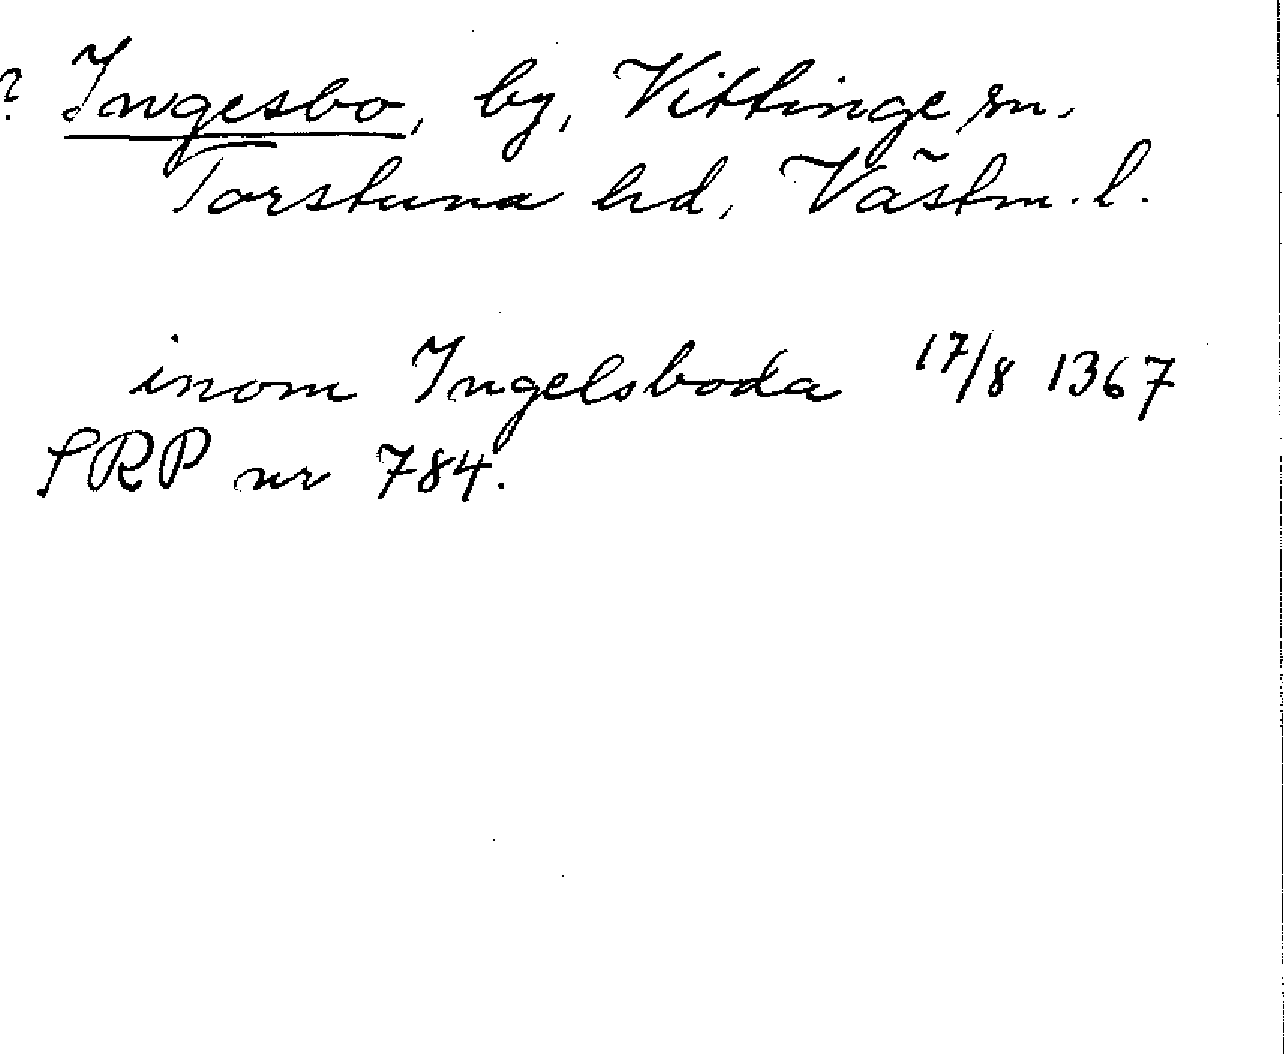 ? Ingesbo, by, Vittinge sn.
Torstuna hd, Västm. l.
inom Ingelsboda 17/8 1367
SRP nr 784.